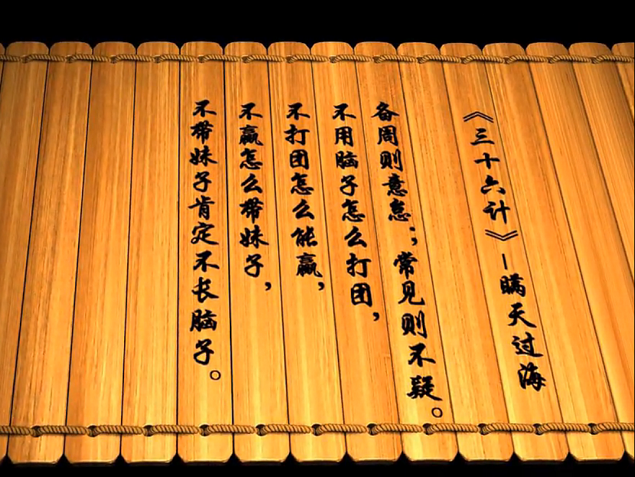 《三十六计》－瞒天过海
备周则意怠；常见则不疑。
不用脑子怎么打团，
不打团怎么能赢，
不赢怎么带妹子，
不带妹子肯定不长脑子。